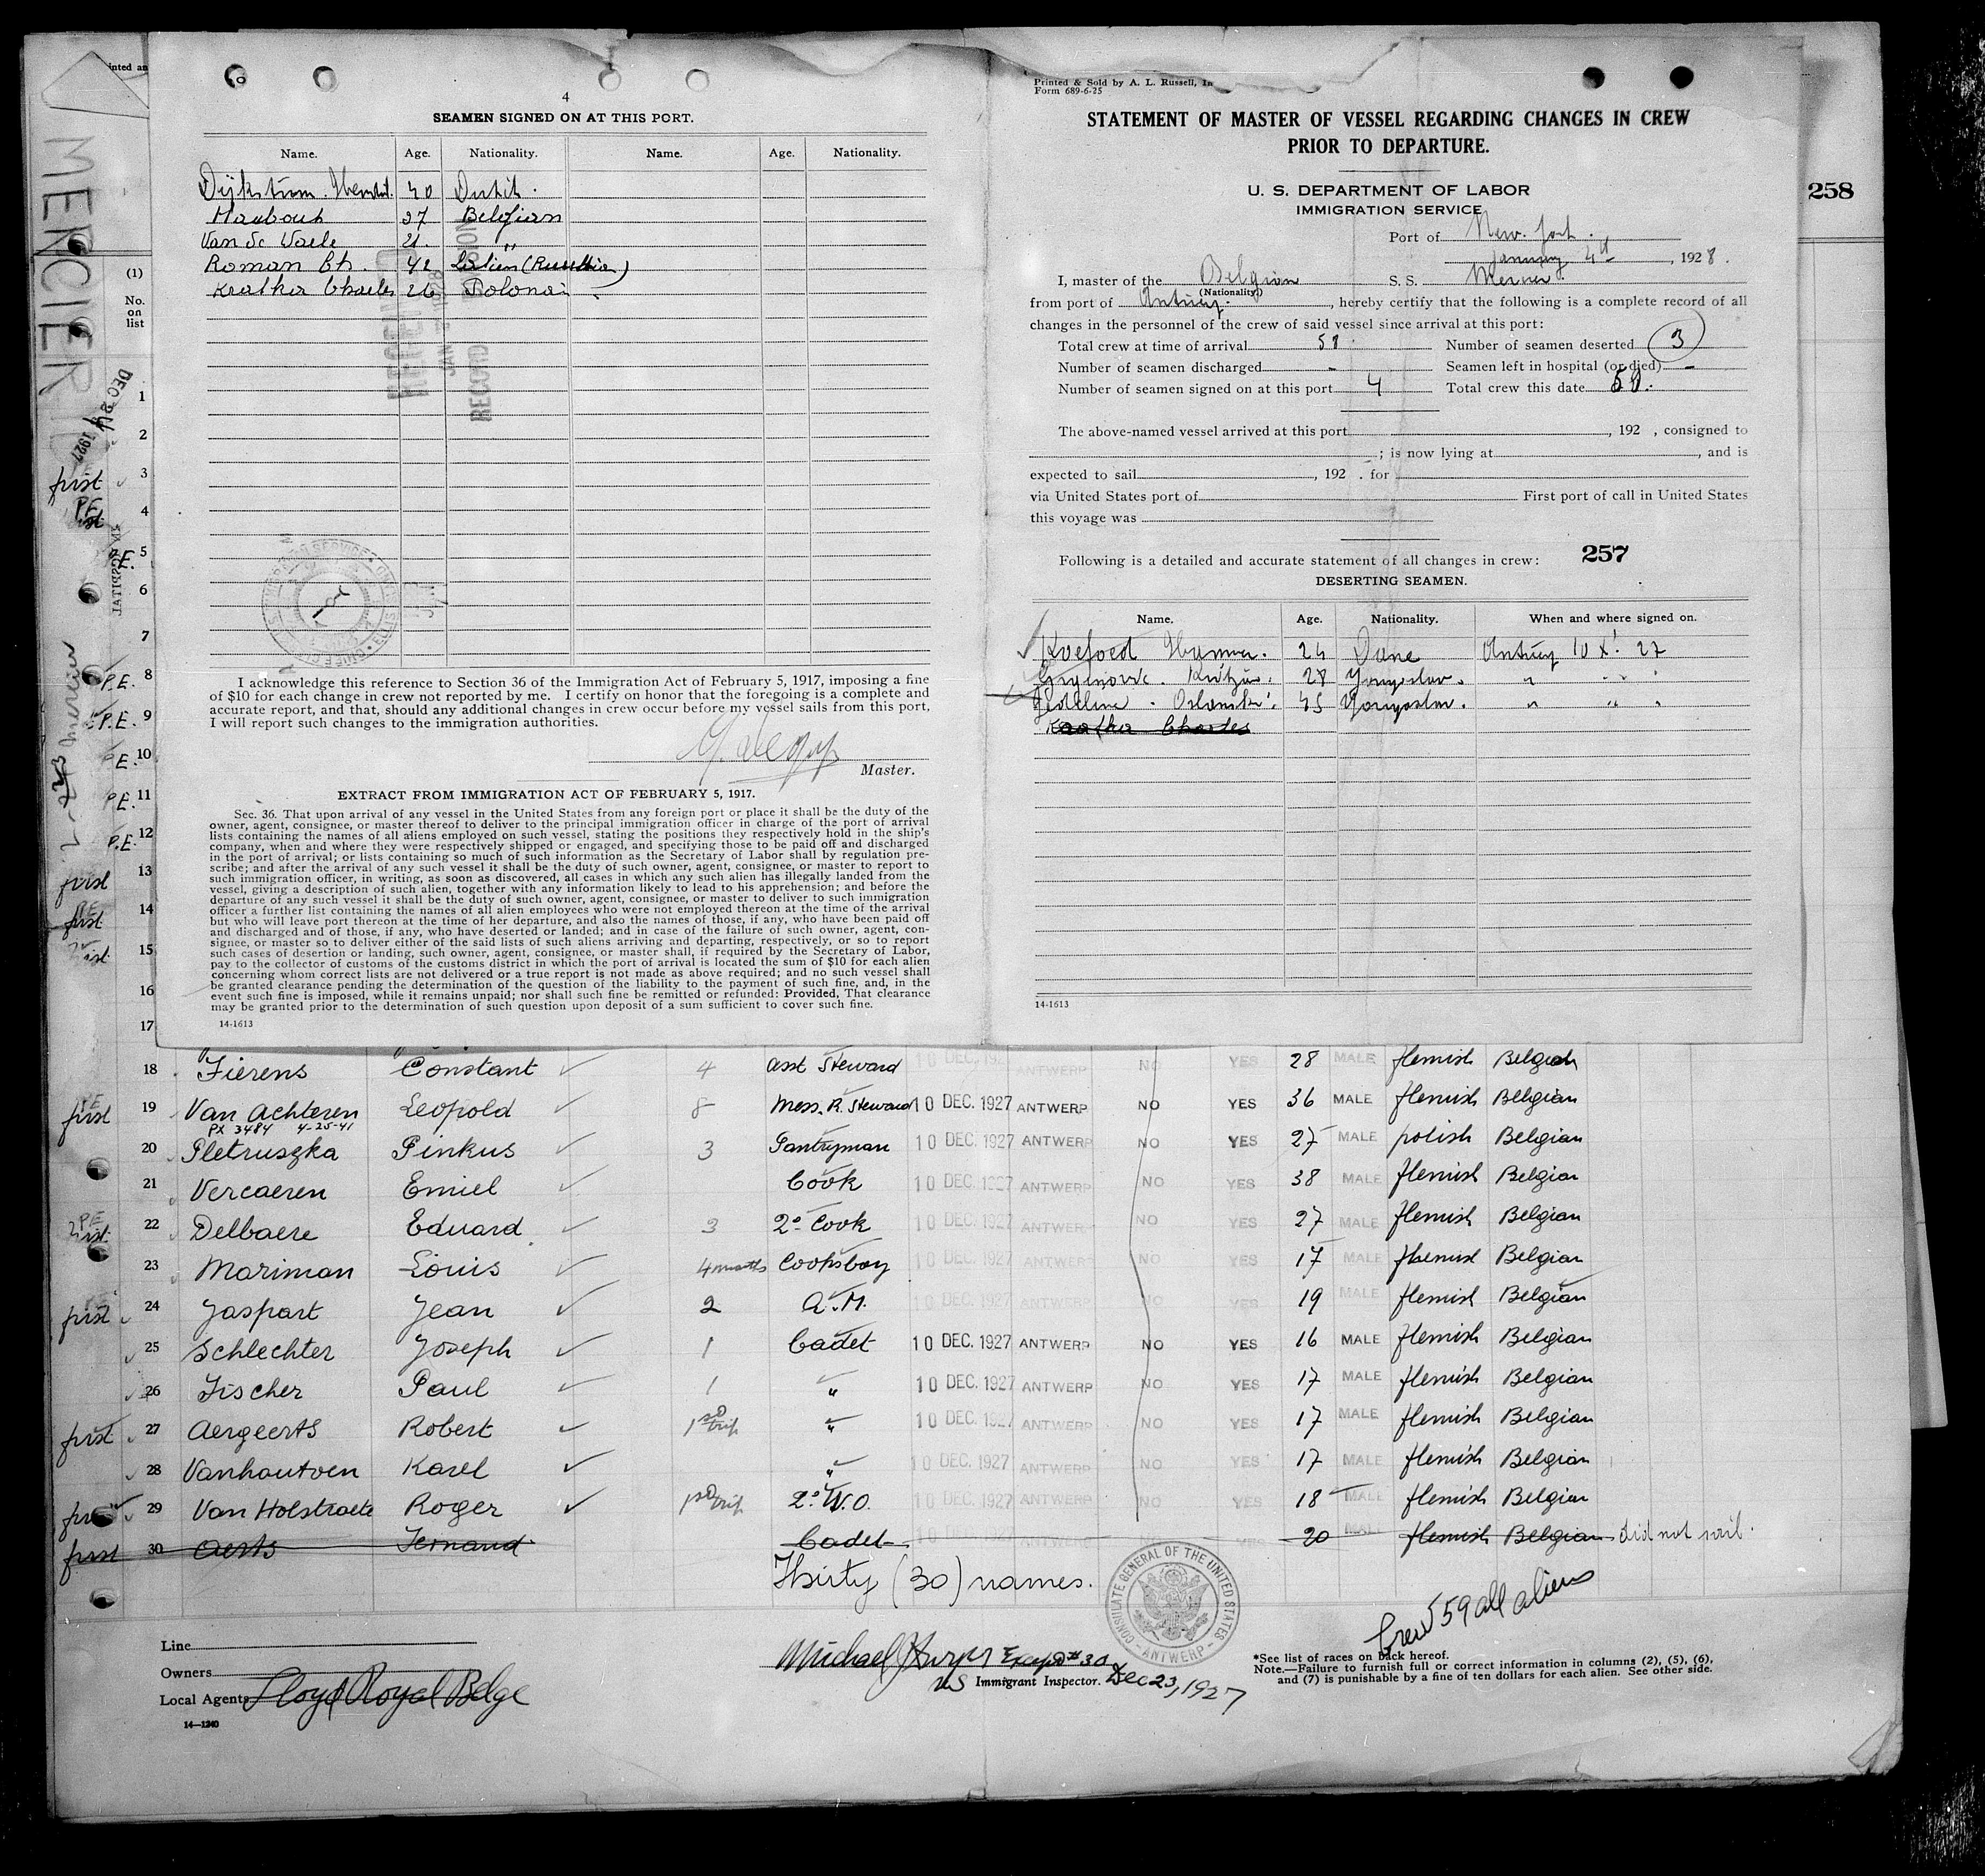 4
SEAMEN SIGNED ON AT THIS PORT.
Name. Age. Nationality. Name. Age. Nationality.
40
Belgian
Van 21. "
Roman Ch. 42 (Russia)
Charles 26 Polonais
RECEIVED
JAN
RECORD DIVISION
I acknowledge this reference to Section 36 of the Immigration Act of February 5, 1917, imposing a fine
of $10 for each change in crew not reported by me. I certify on honor that the foregoing is a complete and
accurate report, and that, should any additional changes in crew occur before my vessel sails from this port,
I will report such changes to the immigration authorities.
Master.
EXTRACT FROM IMMIGRATION ACT OF FEBRUARY 5, 1917.
Sec. 36. That upon arrival of any vessel in the United States from any foreign port or place it shall be the duty of the
owner, agent, consignee, or master thereof to deliver to the principal immigration officer in charge of the port of arrival
lists containing the names of all aliens employed on such vessel, stating the positions they respectively hold in the ship's
company, when and where they were respectively shipped or engaged, and specifying those to be paid off and discharged
in the port of arrival; or lists containing so much of such information as the Secretary of Labor shall by regulation pre-
scribe; and after the arrival of any such vessel it shall be the duty of such owner, agent, consignee, or master to report to
such immigration officer, in writing, as soon as discovered, all cases in which any such alien has illegally landed from the
vessel, giving a description of such alien, together with any information likely to lead to his apprehension; and before the
departure of any such vessel it shall be the duty of such owner, agent, consignee, or master to deliver to such immigration
officer a further list containing the names of all alien employees who were not employed thereon at the time of the arrival
but who will leave port thereon at the time of her departure, and also the names of those, if any, who have been paid off
and discharged and of those, if any, who have deserted or landed; and in case of the failure of such owner, agent, con-
signee, or master so to deliver either of the said lists of such aliens arriving and departing, respectively, or so to report
such cases of desertion or landing, such owner, agent, consignee, or master shall, if required by the Secretary of Labor,
pay to the collector of customs of the customs district in which the port of arrival is located the sum of $10 for each alien
concerning whom correct lists are not delivered or a true report is not made as above required; and no such vessel shall
be granted clearance pending the determination of the question of the liability to the payment of such fine, and, in the
event such fine is imposed, while it remains unpaid; nor shall such fine be remitted or refunded: Provided, That clearance
may be granted prior to the determination of such question upon deposit of a sum sufficient to cover such fine.
14-1613
Printed & Sold by A. L. Russell, In
Form 689-6-25
STATEMENT OF MASTER OF VESSEL REGARDING CHANGES IN CREW
PRIOR TO DEPARTURE.
U. S. DEPARTMENT OF LABOR
IMMIGRATION SERVICE
258
Port of New York.
January 4th, 1928.
I, master of the Belgian S. S. Mercier
(Nationality)
from port of Antwerp, hereby certify that the following is a complete record of all
changes in the personnel of the crew of said vessel since arrival at this port:
Total crew at time of arrival 58 Number of seamen deserted 3
Number of seamen discharged - Seamen left in hospital (or died) -
Number of seamen signed on at this port 4 Total crew this date
The above-named vessel arrived at this port , 192 , consigned to
; is now lying at , and is
expected to sail , 192 . for
via United States port of First port of call in United States
this voyage was
Following is a detailed and accurate statement of all changes in crew: 257
DESERTING SEAMEN.
Name. Age. Nationality. When and where signed on.
Koefoed 24 Dane Antwerp 10 X! 27
28 Yougoslav. " " "
45 Yougoslav. " " "
Charles
14-1613
MERCIER
DEC 24 1927
(1)
No.
on
list
1
2
first 3
4
P.E. 5
6
7
P.E. 8
P.E. 9
P.E. 10
P.E. 11
P.E. 12
first 13
first 14
15
16
17
18 Fierens Constant 4 asst Steward 10 DEC. 1927 ANTWERP NO YES 28 MALE flemish Belgian
first 19 Van Achteren Leopold 8 Mess. R. Steward 10 DEC. 1927 ANTWERP NO YES 36 MALE flemish Belgian
PX 3484 4-25-41
20 Pletruszka Pinkus 3 Pantryman 10 DEC. 1927 ANTWERP NO YES 27 MALE polish Belgian
21 Vercaeren Emiel Cook 10 DEC. 1927 ANTWERP NO YES 38 MALE flemish Belgian
22 Delbaere Eduard 3 2° Cook 10 DEC. 1927 ANTWERP NO YES 27 MALE flemish Belgian
23 Mariman Louis 4 months Cooksboy 10 DEC. 1927 ANTWERP NO YES 17 MALE flemish Belgian
first 24 Jaspart Jean 2 A.M. 10 DEC. 1927 ANTWERP NO YES 19 MALE flemish Belgian
25 Schlechter Joseph 1 Cadet 10 DEC. 1927 ANTWERP NO YES 16 MALE flemish Belgian
26 Fischer Paul 1 " 10 DEC. 1927 ANTWERP NO YES 17 MALE flemish Belgian
first 27 Aergeerts Robert 1st trip " 10 DEC. 1927 ANTWERP NO YES 17 MALE flemish Belgian
28 Vanhoutven Karel " 10 DEC. 1927 ANTWERP NO YES 17 MALE flemish Belgian
first 29 Van Holstraete Roger 1st trip 2° W.O. 10 DEC. 1927 ANTWERP NO YES 18 MALE flemish Belgian
first 30 Aerts Fernand Cadet 10 DEC. 1927 ANTWERP YES 20 MALE flemish Belgian did not sail.
Thirty (30) names.
CONSULATE GENERAL OF THE UNITED STATES - ANTWERP -
Crew 59 all aliens
Line
Owners
Local Agents Lloyd Royal Belge
14-1240
Michael Except #30
US Immigrant Inspector. Dec 23, 1927
*See list of races on back hereof.
Note.—Failure to furnish full or correct information in columns (2), (5), (6),
and (7) is punishable by a fine of ten dollars for each alien. See other side.